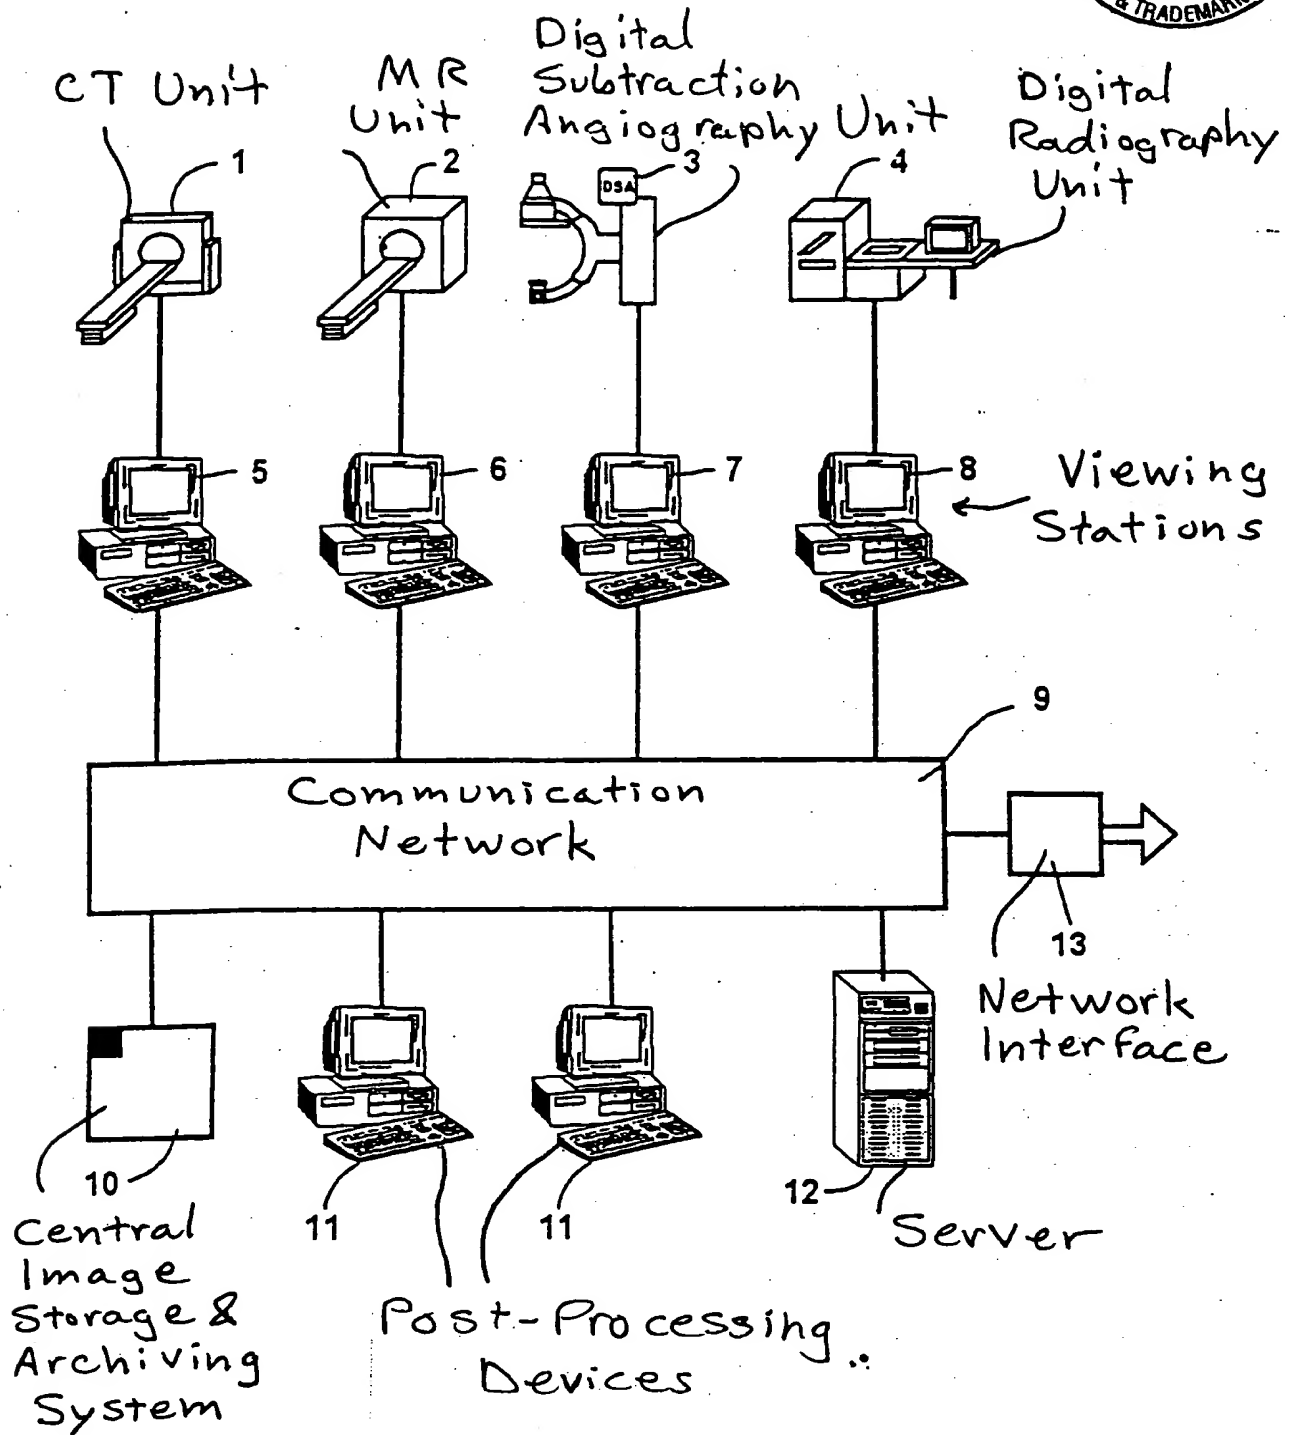 & TRADEMARK
CT Unit
MR
Unit
Digital
Subtraction
Angiography Unit
Digital
Radiography
Unit
1
2
3
4
DSA
5
6
7
8
Viewing
Stations
9
Communication
Network
13
Network
Interface
10
11
11
12
Central
Image
Storage &
Archiving
System
Post-Processing
Devices
Server